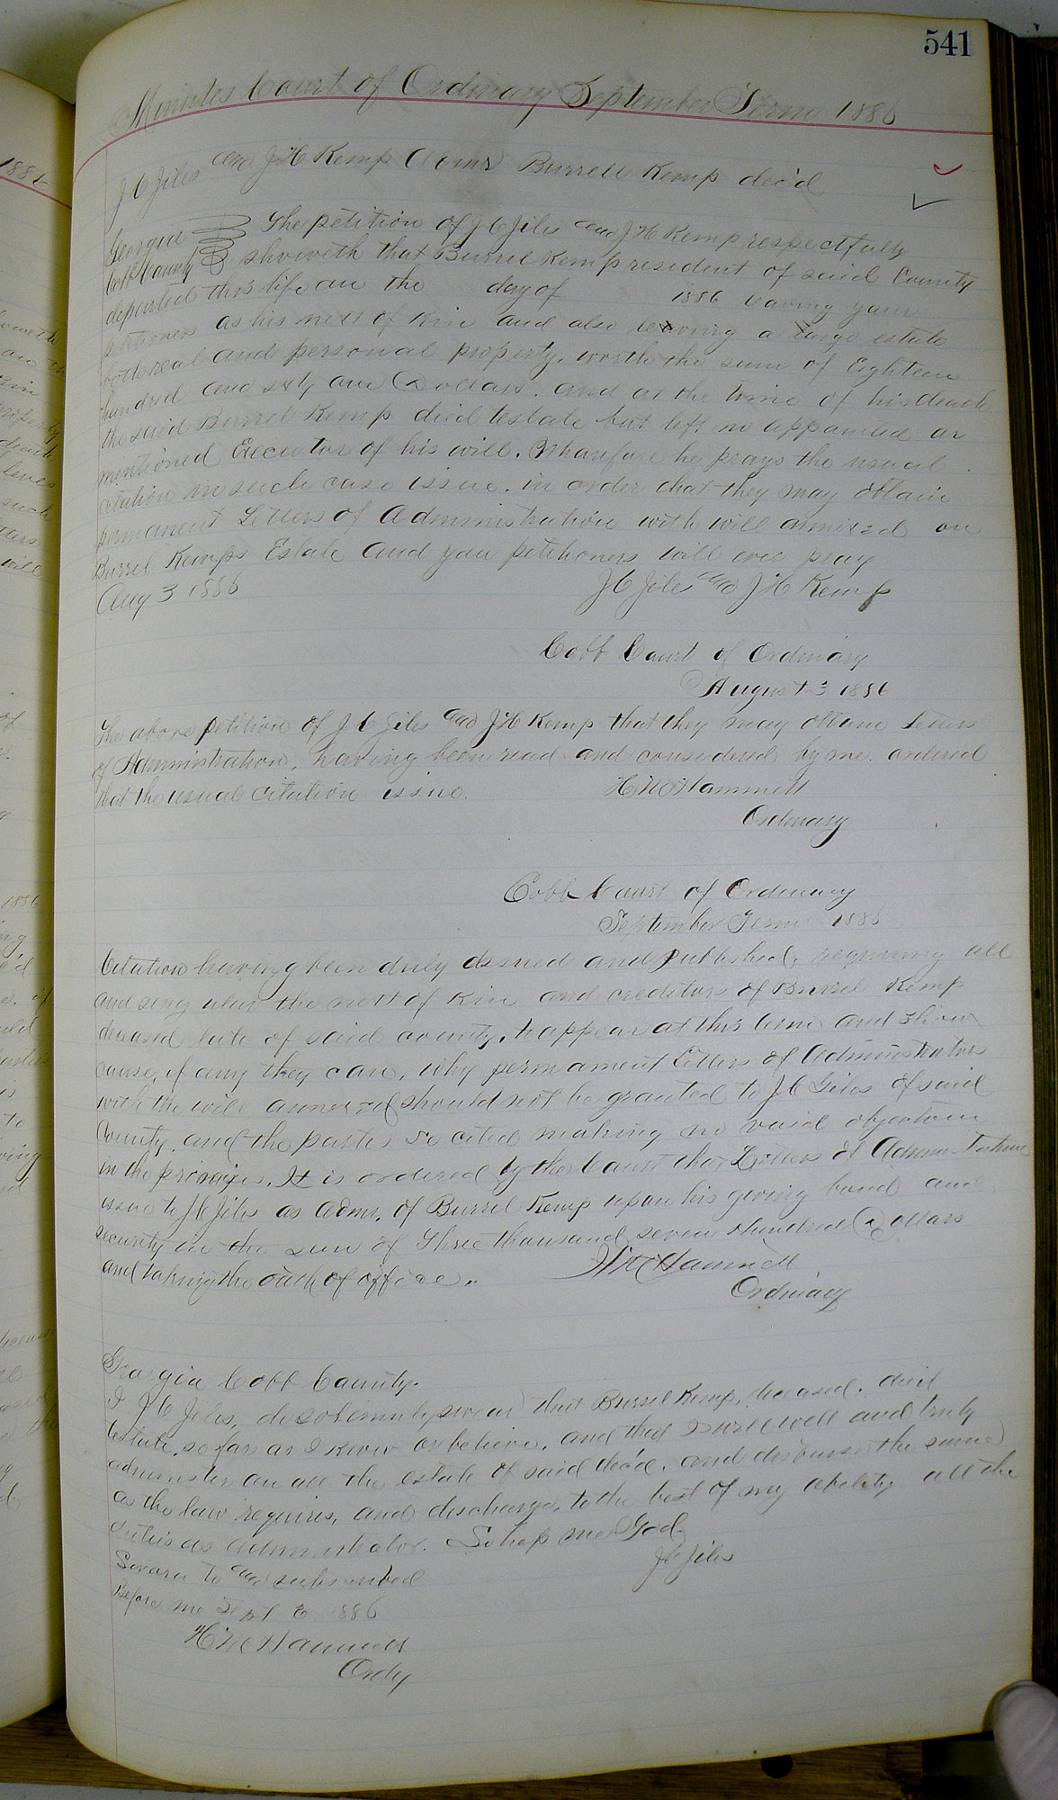 541
Minutes Court of Ordinary September Term 1886
J C Jiles and J H Kemp Admrs Burrell Kemp dec'd
Georgia The petition of J C Jiles and J H Kemp respectfully
Cobb County shoueth that Burrel Kemp resident of said County
departed this life on the day of 1886 leaving your
petitioners as his next of kin and also leaving a large estate
both real and personal property, worth the sum of Eighteen
hundred and sixty one Dollars. and at the time of his death
the said Burrel Kemp died testate but left no appointed or
mentioned Executor of his will. Wharefore he prays the usual
citation in such case issue. in order that they may obtain
permanent Letters of Administration with will annexed on
Burrel Kemps Estate and your petitioners will ever pray
Aug 3 1886 J C Jiles and J H Kemp
Cobb Court of Ordinary
August 3 1886
The above petition of J C Jiles and J H Kemp that they may obtain Letters
of Administration, having been read and considered by me. ordered
that the usual citation issue. H M Hammett
Ordinary
Cobb Court of Ordinary
September Term 1886
Citation having been duly issued and published, requiring all
and singular the next of Kin and creditors of Burrel Kemp
deceased late of said county, to appear at this term and show
cause, if any they can, why permament Letters of Administration
with the will annexed should not be granted to J C Jiles of said
County. and the parties so cited making no valid objection
in the premises. It is ordered by the Court that Letters of Administration
issue to J C Jiles as Admr. of Burrel Kemp upon his giving bond and
security in the sum of Three thousand seven hundred Dollars
and taking the oath of office. H M Hammett
Ordinary
Georgia Cobb County.
I J C Jiles, do solemnly swear that Burrel Kemp, deceased. died
testate, so far as I know or believe, and that I will well and truly
administer on all the estate of said dec'd. and disburse the same
as the law requires, and discharge, to the best of my ability all the
duties as administrator. So help me God.
Sworn to and subscribed J C Jiles
Before me Sept 6 1886
H M Hammett
Ordy